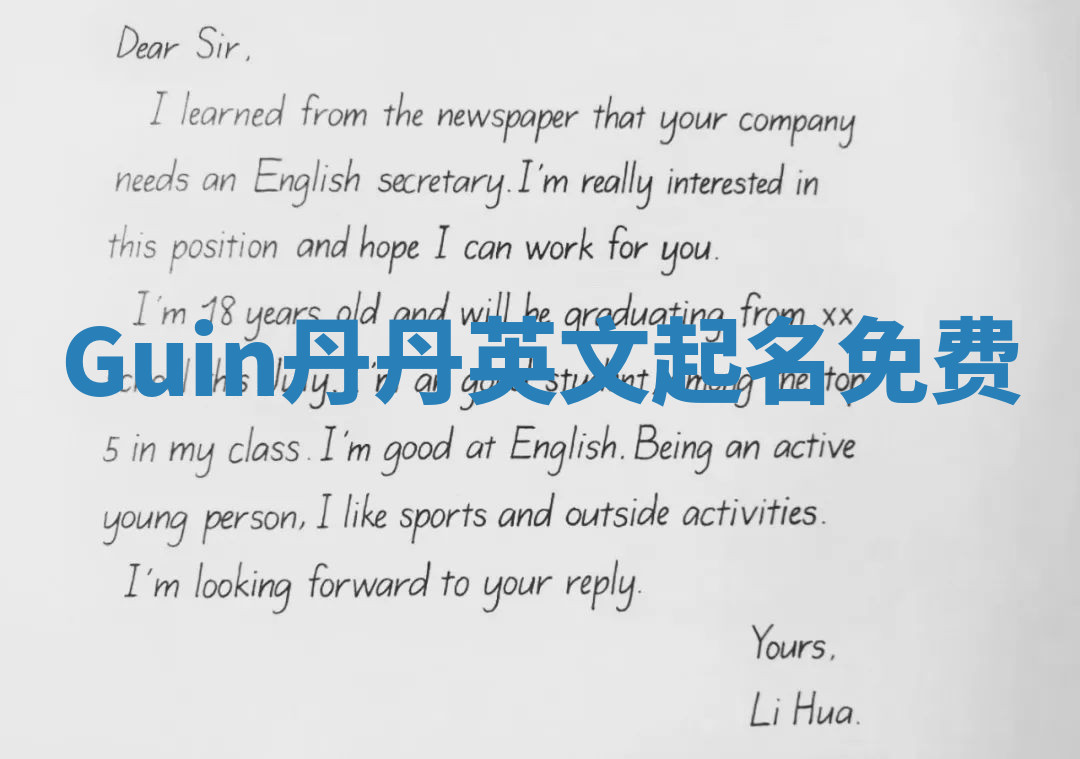 Dear Sir,
I learned from the newspaper that your company
needs an English secretary. I'm really interested in
this position and hope I can work for you.
I'm 18 years old and will be graduating from xx
Guin丹丹英文起名免费
school this July. I'm an good student, among the top
5 in my class. I'm good at English. Being an active
young person, I like sports and outside activities.
I'm looking forward to your reply.
Yours,
Li Hua.